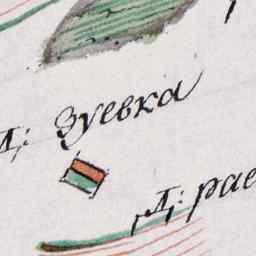 Д: Зуевка
Д: рае